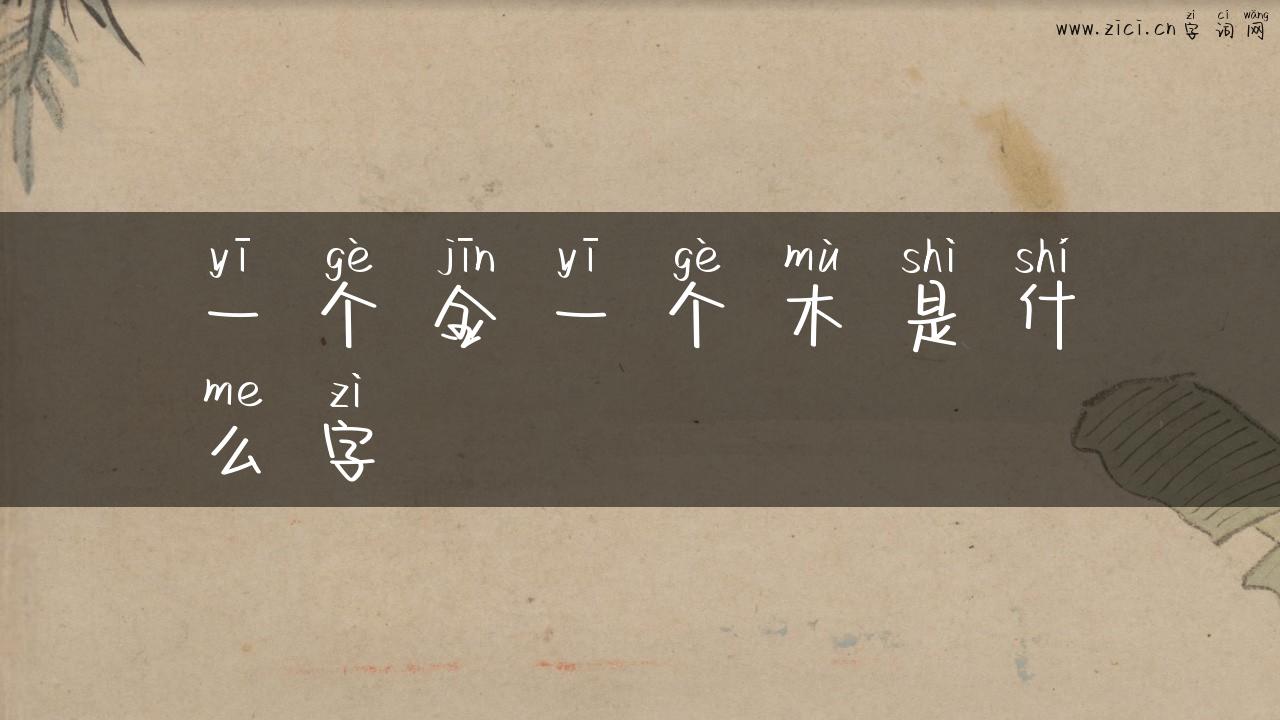 zì cí wǎng
www.zici.cn 字词网
yī gè jīn yī gè mù shì shí
一个金一个木是什
me zì
么字